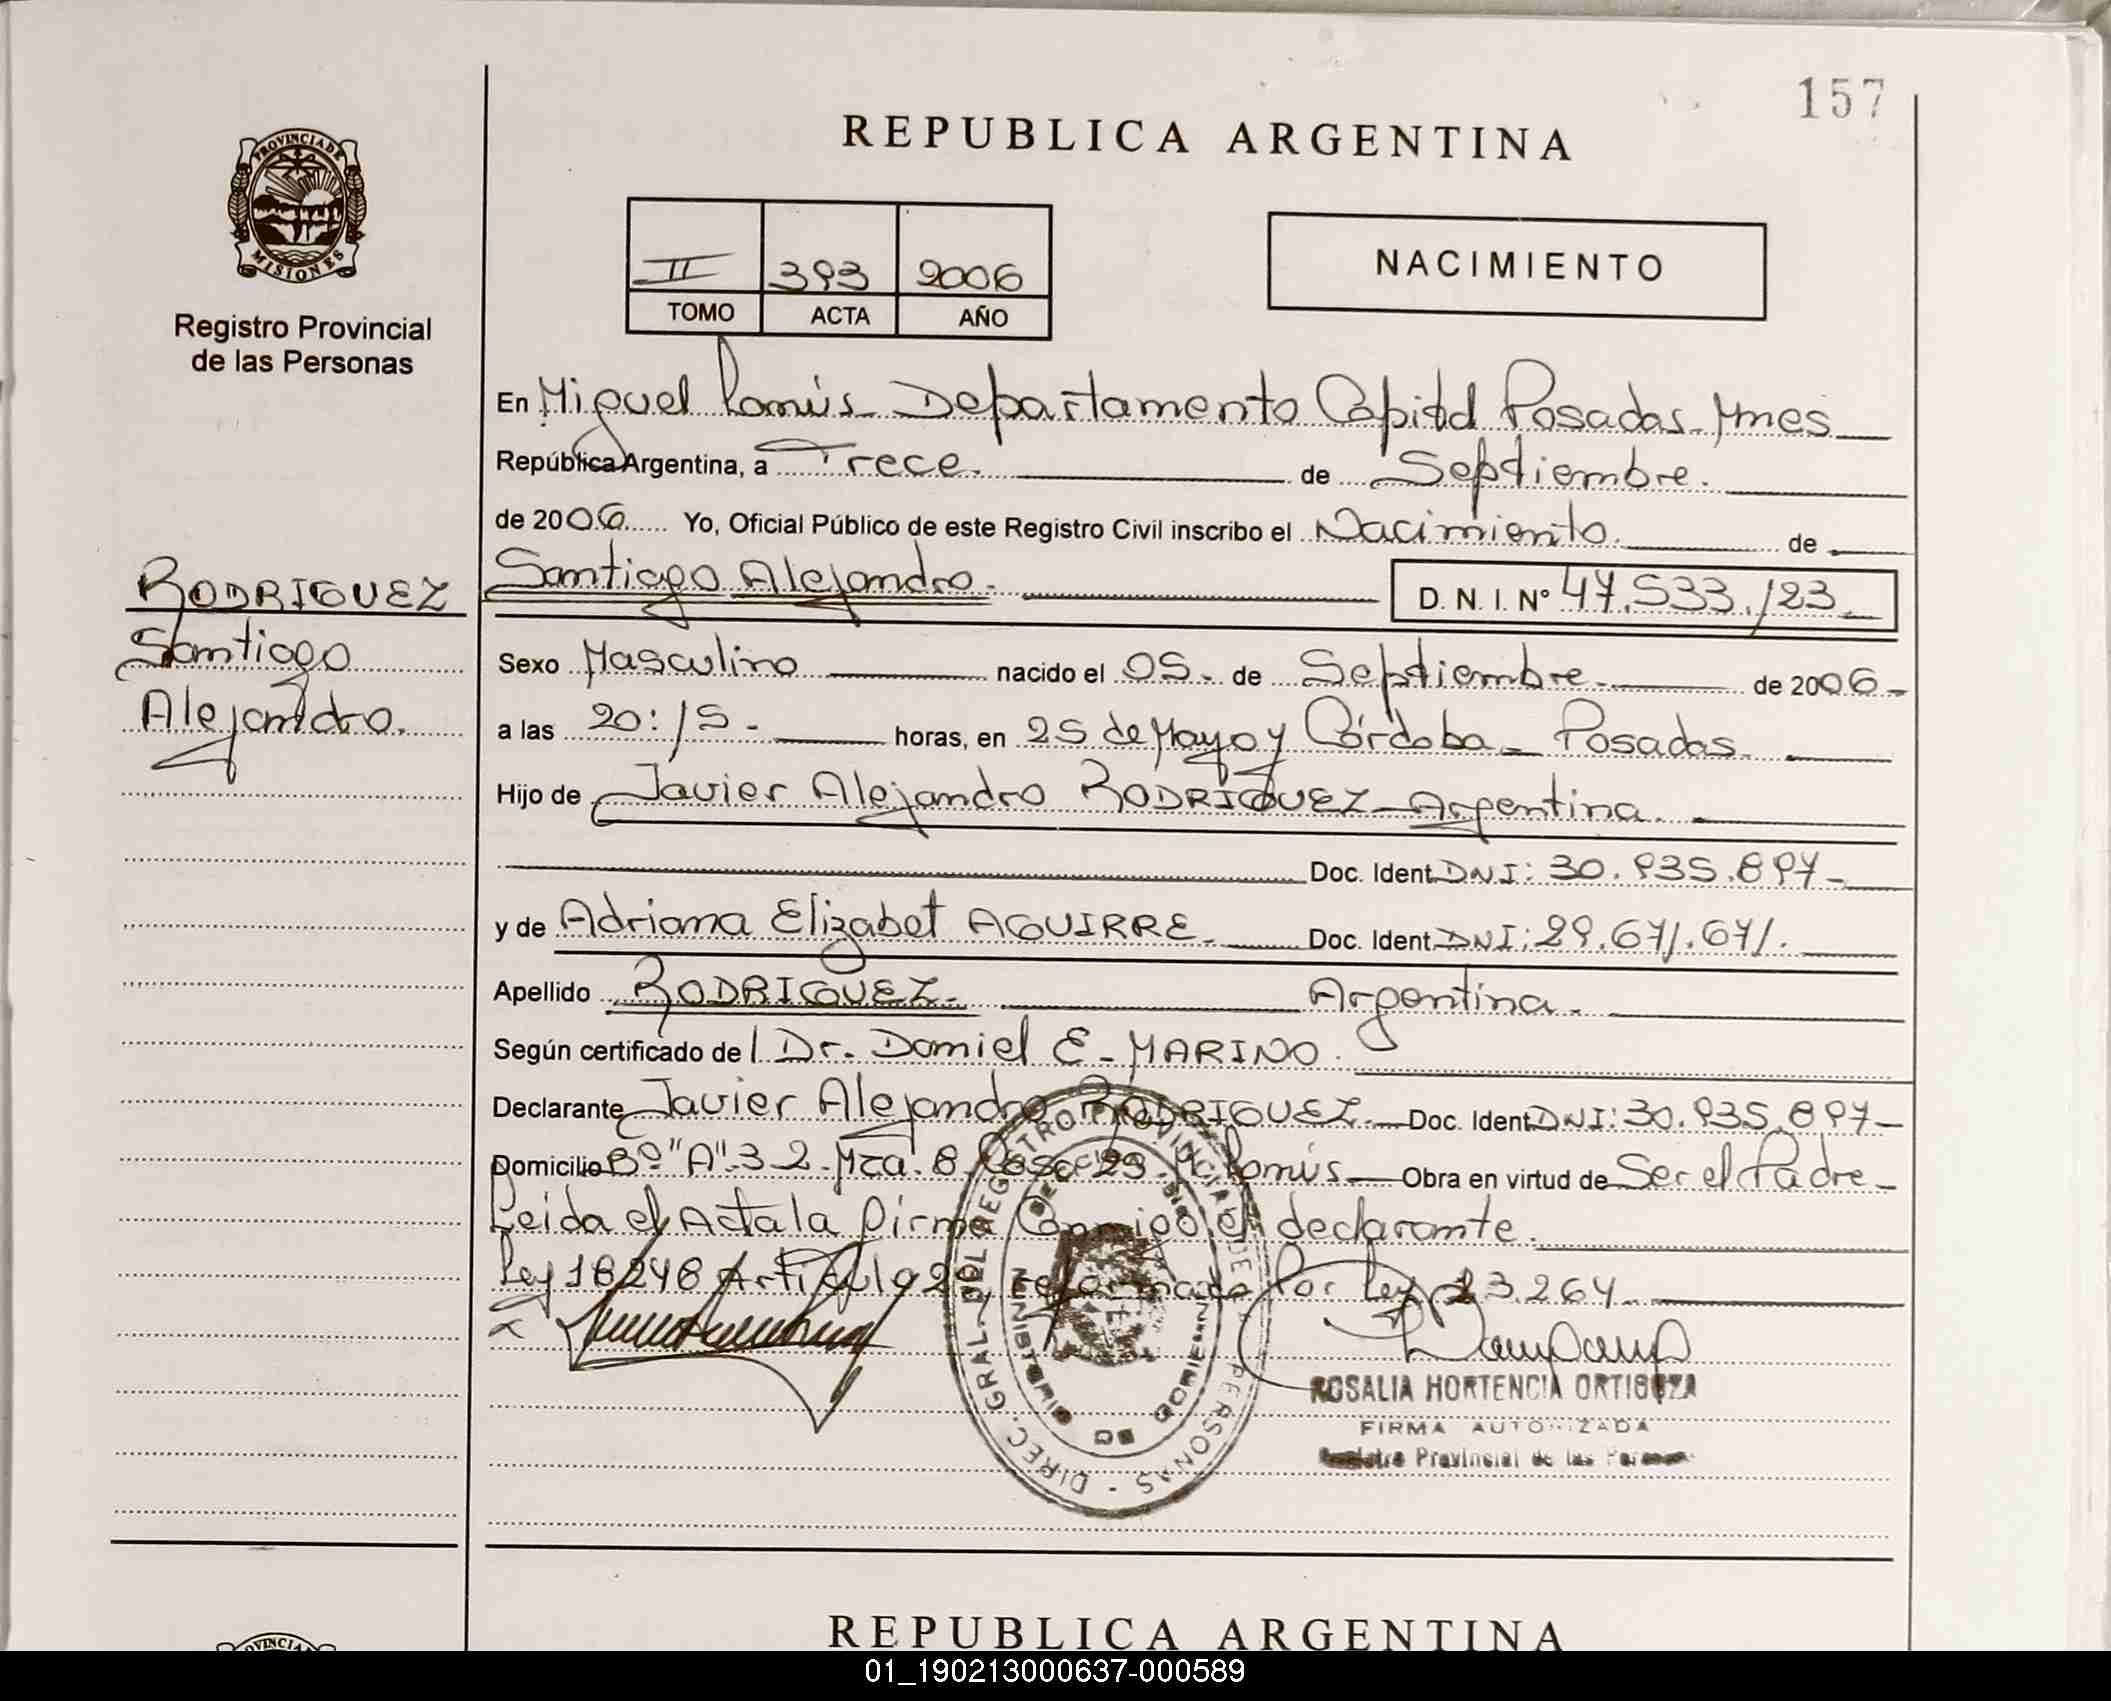 157
REPUBLICA ARGENTINA
PROVINCIA DE
MISIONES
Registro Provincial
de las Personas
II 393 2006
TOMO ACTA AÑO
NACIMIENTO
En Miguel Lanús - Departamento Capital Posadas - Mnes
República Argentina, a Trece. de Septiembre.
de 2006 Yo, Oficial Público de este Registro Civil inscribo el Nacimiento. de
RODRIGUEZ
Santiago
Alejandro.
Santiago Alejandro. D. N. I. Nº 47.533.123
Sexo Masculino nacido el 05. de Septiembre. de 2006-
a las 20:15- horas, en 25 de Mayo y Córdoba - Posadas.
Hijo de Javier Alejandro RODRIGUEZ - Argentina.
Doc. Ident. DNI: 30.935.897-
y de Adriana Elizabet AGUIRRE. Doc. Ident. DNI: 29.671.671.
Apellido RODRIGUEZ. Argentina.
Según certificado del Dr. Daniel E. MARINO.
Declarante Javier Alejandro RODRIGUEZ. Doc. Ident. DNI: 30.935.897-
Domicilio Bº "A". 32. Mza. 8 Casa 29. M. Lanús. Obra en virtud de Ser el Padre -
Leida el Acta la firma Conmigo el declarante.
Ley 18248 Artículo 2º, reformado Por Ley 23.264.
DIREC. GRAL. DEL REGISTRO PROVINCIAL DE PERSONAS
ROSALIA HORTENCIA ORTIGOZA
FIRMA AUTORIZADA
Registro Provincial de las Personas
REPUBLICA ARGENTINA
01_190213000637-000589